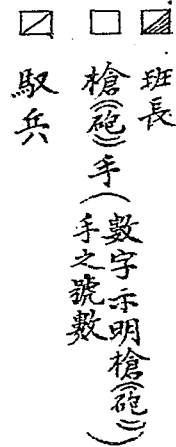 班長
槍(砲)手(數字示明槍(砲)
手之號數)
馭兵